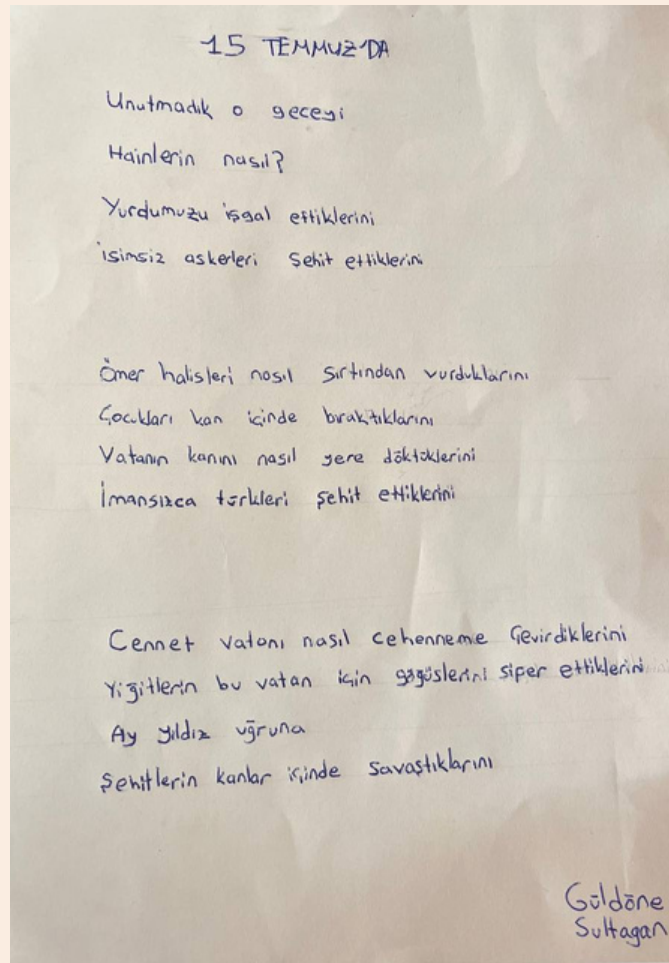 15 TEMMUZ'DA
Unutmadık o geceyi
Hainlerin nasıl?
Yurdumuzu işgal ettiklerini
isimsiz askerleri Şehit ettiklerini
Ömer halisleri nasıl sırtından vurduklarını
Çocukları kan içinde bıraktıklarını
Vatanın kanını nasıl yere döktüklerini
İmansızca türkleri şehit ettiklerini
Cennet vatanı nasıl cehenneme Çevirdiklerini
Yiğitlerin bu vatan için göğüslerini siper ettiklerini
Ay yıldız uğruna
Şehitlerin kanlar içinde savaştıklarını
Güldöne
Sultagan